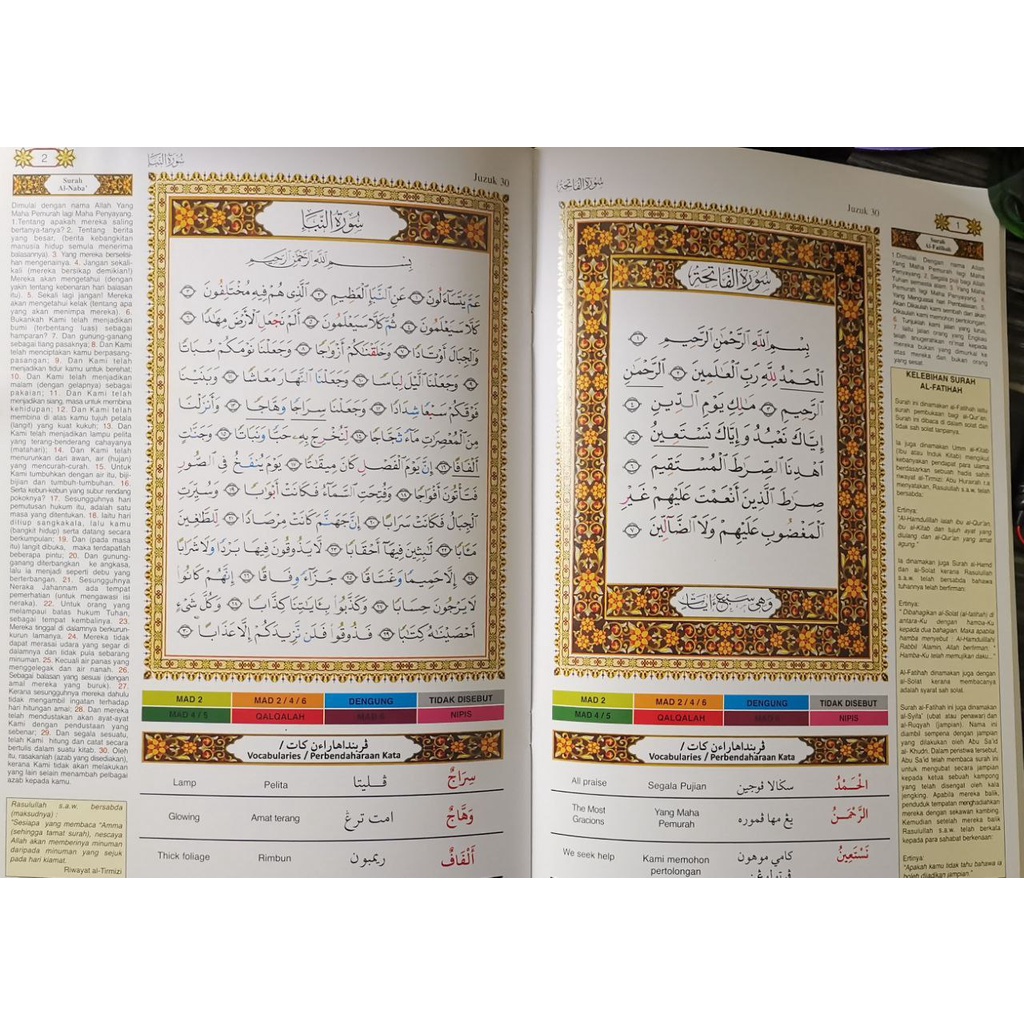 سُورَةُ الْفَاتِحَةِ
Juzuk 30
1
Surah
Al-Fatihah
سُورَةُ الْفَاتِحَةِ
بِسْمِ اللَّهِ الرَّحْمَٰنِ الرَّحِيمِ ١
الْحَمْدُ لِلَّهِ رَبِّ الْعَالَمِينَ ٢ الرَّحْمَٰنِ
الرَّحِيمِ ٣ مَالِكِ يَوْمِ الدِّينِ ٤
إِيَّاكَ نَعْبُدُ وَإِيَّاكَ نَسْتَعِينُ ٥
اهْدِنَا الصِّرَاطَ الْمُسْتَقِيمَ ٦
صِرَاطَ الَّذِينَ أَنْعَمْتَ عَلَيْهِمْ غَيْرِ
الْمَغْضُوبِ عَلَيْهِمْ وَلَا الضَّالِّينَ ٧
وهي سبع ءايات
1.Dimulai Dengan nama Allah
Yang Maha Pemurah lagi Maha
Penyayang. 2. Segala puji bagi Allah
Tuhan semesta alam. 3. Yang Maha
Pemurah lagi Maha Penyayang. 4.
Yang Menguasai hari Pembalasan. 5.
KELEBIHAN SURAH
AL-FATIHAH
Surah ini dinamakan al-Fatihah iaitu
surah pembukaan bagi al-Qur'an.
Surah ini dibaca di dalam solat dan
tidak sah solat tanpanya.
Ia juga dinamakan Umm al-Kitab
(Ibu atau Induk Kitab) mengikut
kebanyakan pendapat para ulama
berdasarkan sebuah hadis sahih
riwayat al-Tirmizi: Abu Hurairah r.a
menyatakan, Rasulullah s.a.w.
bersabda:
Ertinya:
"Al-Hamdulillah ialah ibu al-Qur'an,
ibu al-Kitab dan tujuh ayat yang
diulang dan al-Qur'an yang amat
agung."
Ia dinamakan juga Surah al-Hamd
dan al-Solat kerana Rasulullah
s.a.w. telah bersabda bahawa
tuhannya telah berfirman:
Ertinya:
"Dibahagikan al-Solat (al-fatihah) di
antara-Ku dengan hamba-Ku
kepada dua bahagian. Maka apabila
hamba menyebut : Al-Hamdulillahi
Rabbil Alamin, Allah berfirman:
Hamba-Ku telah memujikan daku..."
Al-Fatihah dinamakan juga dengan
al-Solat kerana membacanya
adalah syarat sah solat.
Surah al-Fatihah ini juga dinamakan
al-Syifa' (ubat atau penawar) dan
al-Ruqyah (jampian). Nama ini
diambil sempena dengan jampian
yang dilakukan oleh Abu Sa'id
al- Khudri. Dalam peristiwa tersebut
Abu Sa'id telah membaca surah ini
untuk mengubat secara jampian
kepada ketua sebuah kampong
yang telah disengat oleh kala
jengking. Apabila mereka balik,
penduduk tempatan menghadiahkan
mereka dengan sekawan kambing.
Kemudian setelah mereka balik
Rasulullah s.a.w. telah berkata
kepada para sahabat berkenaan:
Ertinya:
"Apakah kamu tidak tahu bahawa ia
boleh dijadikan jampian."
MAD 2 MAD 2 / 4 / 6 DENGUNG TIDAK DISEBUT
MAD 4 / 5 QALQALAH NIPIS
ڤربنداهارءن كات /
Vocabularies / Perbendaharaan Kata
All praise Segala Pujian سكالا ڤوجين الْحَمْدُ
The Most Gracions Yang Maha Pemurah يڠ مها ڤموره الرَّحْمَٰنُ
We seek help Kami memohon pertolongan كامي موهون نَسْتَعِينُ
2
Surah
Al-Naba'
سُورَةُ النَّبَإِ
Juzuk 30
سُورَةُ النَّبَإِ
بِسْمِ اللَّهِ الرَّحْمَٰنِ الرَّحِيمِ
عَمَّ يَتَسَاءَلُونَ ١ عَنِ النَّبَإِ الْعَظِيمِ ٢ الَّذِي هُمْ فِيهِ مُخْتَلِفُونَ ٣
كَلَّا سَيَعْلَمُونَ ٤ ثُمَّ كَلَّا سَيَعْلَمُونَ ٥ أَلَمْ نَجْعَلِ الْأَرْضَ مِهَادًا ٦
وَالْجِبَالَ أَوْتَادًا ٧ وَخَلَقْنَاكُمْ أَزْوَاجًا ٨ وَجَعَلْنَا نَوْمَكُمْ سُبَاتًا
٩ وَجَعَلْنَا اللَّيْلَ لِبَاسًا ١٠ وَجَعَلْنَا النَّهَارَ مَعَاشًا ١١ وَبَنَيْنَا
فَوْقَكُمْ سَبْعًا شِدَادًا ١٢ وَجَعَلْنَا سِرَاجًا وَهَّاجًا ١٣ وَأَنزَلْنَا
مِنَ الْمُعْصِرَاتِ مَاءً ثَجَّاجًا ١٤ لِّنُخْرِجَ بِهِ حَبًّا وَنَبَاتًا ١٥ وَجَنَّاتٍ
أَلْفَافًا ١٦ إِنَّ يَوْمَ الْفَصْلِ كَانَ مِيقَاتًا ١٧ يَوْمَ يُنفَخُ فِي الصُّورِ
فَتَأْتُونَ أَفْوَاجًا ١٨ وَفُتِحَتِ السَّمَاءُ فَكَانَتْ أَبْوَابًا ١٩ وَسُيِّرَتِ
الْجِبَالُ فَكَانَتْ سَرَابًا ٢٠ إِنَّ جَهَنَّمَ كَانَتْ مِرْصَادًا ٢١ لِّلطَّاغِينَ
مَآبًا ٢٢ لَّابِثِينَ فِيهَا أَحْقَابًا ٢٣ لَّا يَذُوقُونَ فِيهَا بَرْدًا وَلَا شَرَابًا
٢٤ إِلَّا حَمِيمًا وَغَسَّاقًا ٢٥ جَزَاءً وِفَاقًا ٢٦ إِنَّهُمْ كَانُوا
لَا يَرْجُونَ حِسَابًا ٢٧ وَكَذَّبُوا بِآيَاتِنَا كِذَّابًا ٢٨ وَكُلَّ شَيْءٍ
أَحْصَيْنَاهُ كِتَابًا ٢٩ فَذُوقُوا فَلَن نَّزِيدَكُمْ إِلَّا عَذَابًا ٣٠
Dimulai dengan nama Allah Yang
Maha Pemurah lagi Maha Penyayang.
1.Tentang apakah mereka saling
bertanya-tanya? 2. Tentang berita
yang besar, (berita kebangkitan
manusia hidup semula menerima
balasannya). 3. Yang mereka berselisi-
han mengenainya. 4. Jangan sekali-
kali (mereka bersikap demikian!)
Mereka akan mengetahui (dengan
yakin tentang kebenaran hari balasan
itu). 5. Sekali lagi jangan! Mereka
akan mengetahui kelak (tentang apa
yang akan menimpa mereka). 6.
Bukankah Kami telah menjadikan
bumi (terbentang luas) sebagai
hamparan? 7. Dan gunung-ganang
sebagai tiang pasaknya; 8. Dan Kami
telah menciptakan kamu berpasang-
pasangan; 9. Dan Kami telah
menjadikan tidur kamu untuk berehat;
10. Dan Kami telah menjadikan
malam (dengan gelapnya) sebagai
pakaian; 11. Dan Kami telah
menjadikan siang, masa untuk mencari
kehidupan; 12. Dan Kami telah
membina di atas kamu tujuh petala
(langit) yang kuat kukuh; 13. Dan
Kami telah menjadikan lampu pelita
yang terang-benderang cahayanya
(matahari); 14. Dan Kami telah
menurunkan dari awan, air (hujan)
yang mencurah-curah. 15. Untuk
Kami tumbuhkan dengan air itu, biji-
bijian dan tumbuh-tumbuhan. 16.
Serta kebun-kebun yang subur rendang
pokoknya? 17. Sesungguhnya hari
pemutusan hukum itu, adalah satu
masa yang ditentukan. 18. Iaitu hari
ditiup sangkakala, lalu kamu
(bangkit hidup) serta datang secara
berkumpulan; 19. Dan (pada masa
itu) langit dibuka, maka terdapatlah
beberapa pintu; 20. Dan gunung-
ganang diterbangkan ke angkasa,
lalu ia menjadi seperti debu yang
berterbangan. 21. Sesungguhnya
Neraka Jahannam ada tempat
pemerhatian (untuk mengawasi isi
neraka). 22. Untuk orang yang
melampaui batas hukum Tuhan,
sebagai tempat kembalinya. 23.
Mereka tinggal di dalamnya berkurun-
kurun lamanya. 24. Mereka tidak
dapat merasai udara yang segar di
dalamnya dan tidak pula sebarang
minuman. 25. Kecuali air panas yang
menggelegak dan air nanah. 26.
Sebagai balasan yang sesuai (dengan
amal mereka yang buruk). 27.
Kerana sesungguhnya mereka dahulu
tidak mengambil ingatan terhadap
hari hitungan amal; 28. Dan mereka
telah mendustakan ayat-ayat
Kami dengan pendustaan yang
sebenar; 29. Dan segala sesuatu,
telah Kami hitung dan catat secara
bertulis dalam suatu kitab. 30. Oleh
itu, rasakanlah (azab yang disediakan),
kerana Kami tidak akan melakukan
yang lain selain menambah pelbagai
azab kepada kamu.
Rasulullah s.a.w. bersabda
(maksudnya) :
"Sesiapa yang membaca "Amma
(sehingga tamat surah), nescaya
Allah akan memberinya minuman
daripada minuman yang sejuk
pada hari kiamat.
Riwayat al-Tirmizi
MAD 2 MAD 2 / 4 / 6 DENGUNG TIDAK DISEBUT
MAD 4 / 5 QALQALAH NIPIS
ڤربنداهارءن كات /
Vocabularies / Perbendaharaan Kata
Lamp Pelita ڤليتا سِرَاجٌ
Glowing Amat terang امت ترڠ وَهَّاجٌ
Thick foliage Rimbun ريمبون أَلْفَافٌ